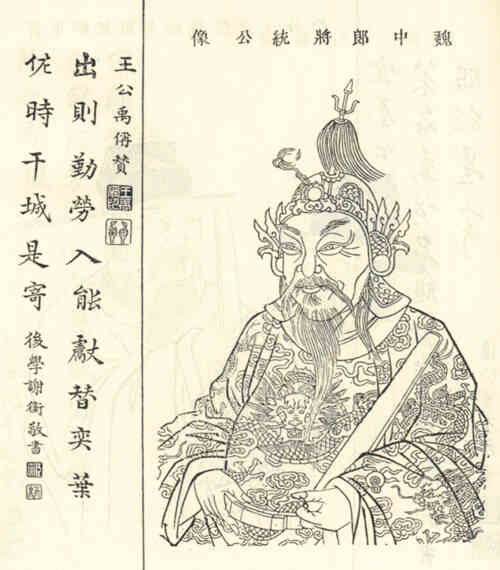 魏中郎將統公像
王公禹偁贊
出則勤勞入能獻替奕葉
佐時干城是寄
後學謝衛敬書